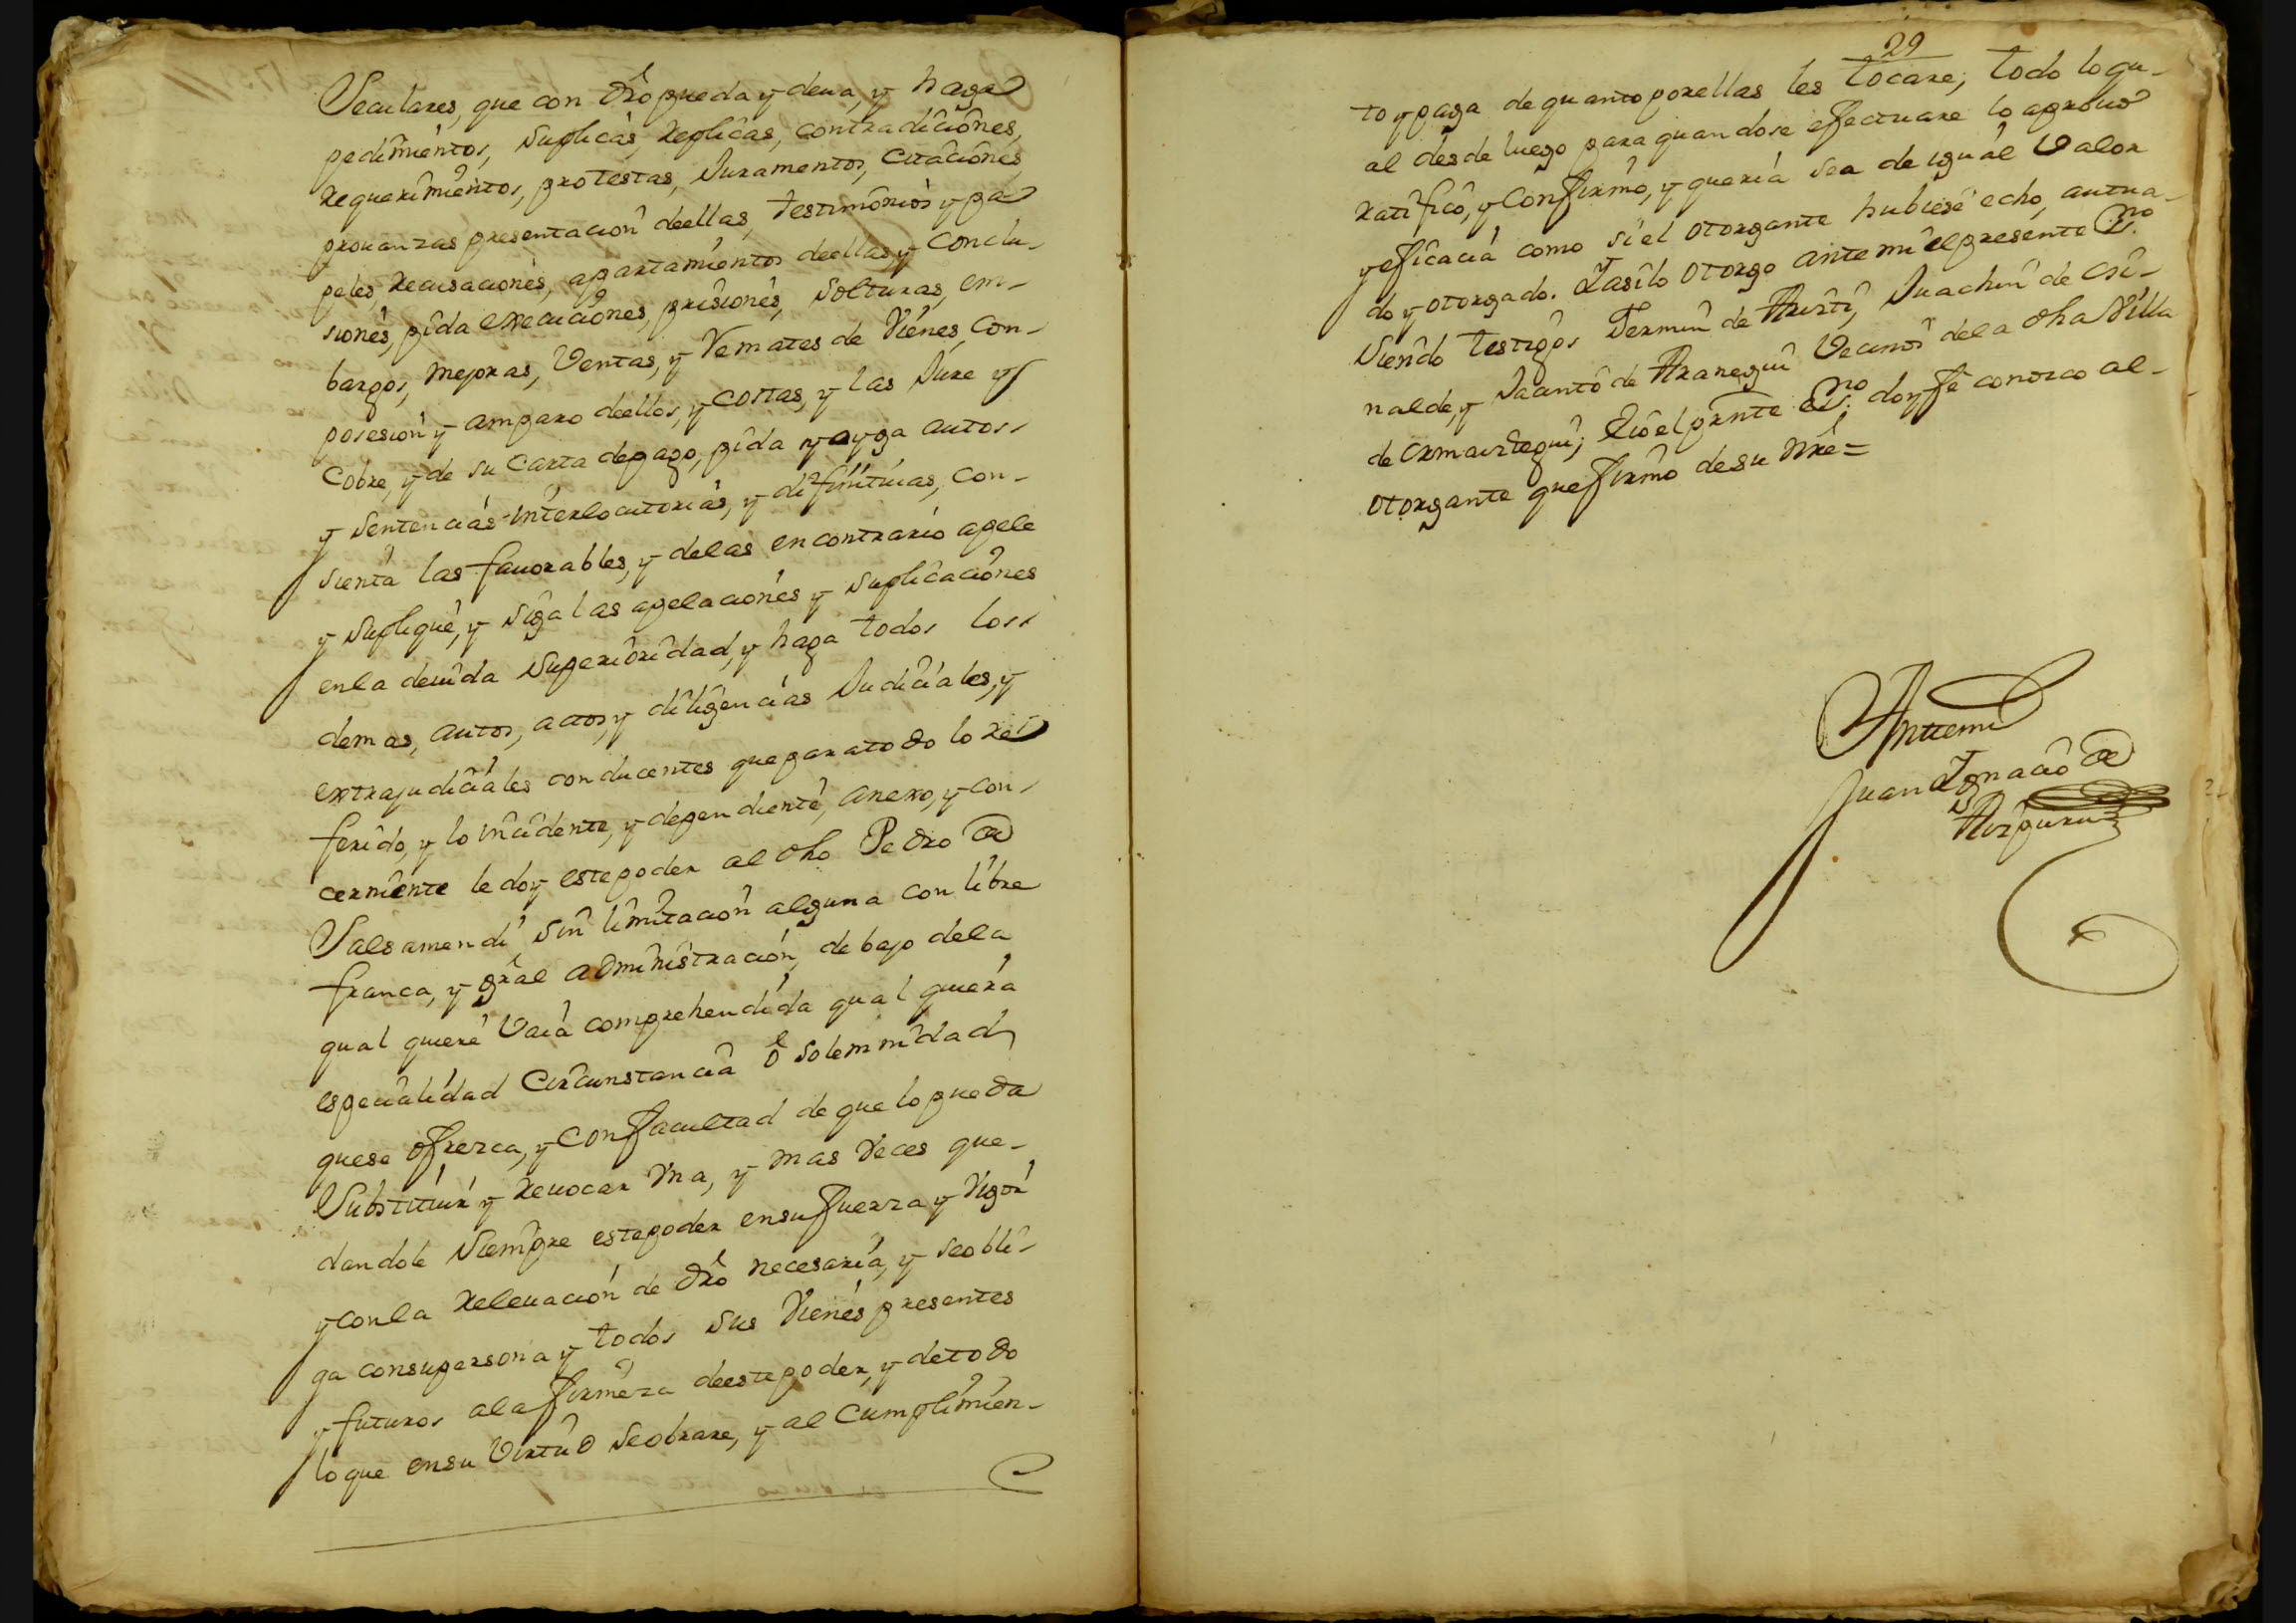 Seculares, que con dro pueda y deua, y haga
pedimientos, suplicas, replicas, contradiciones,
requerimientos, protestas, Juramentos, Citaciones
prouanzas presentacion deellas, testimonios y pa
peles, Recusaciones, apartamientos deellas, y Conclu-
siones, pida execuciones, prisiones, solturas, em-
bargos, mejoras, Ventas, y Remates de Vienes, con-
posesion y amparo deellos, y costas, y las Jure y
Cobre, y de su Carta depago, pida y oyga autos
y sentencias interlocutorias, y difinitiuas, con-
sienta las fauorables, y delas encontrario apele
y suplique, y siga las apelaciones y suplicaciones
enla deuida superioridad, y haga todos los
demas, autos, actos, y diligencias Judiciales, y
extrajudiciales conducentes que paratodo lo re
ferido, y lo incidente, y dependiente, anexo, y con-
cerniente le doy estepoder al dho Pedro de
Salsamendi sin limitacion alguna con libre
franca, y gral administracion, de bajo dela
qual quiere Vaia comprehendida qual quiera
especialidad Circunstancia ô solemnidad
quese ofrezca, y Confacultad de que lo pueda
Substituir y Reuocar Vna, y mas Veces que-
dandole siempre estepoder ensufuerza y Vigor
y conla Releuacion de dro necesaria, y seobli-
ga consupersona y todos sus Vienes presentes
y futuros alafirmeza deestepoder, y detodo
loque ensu Virtud seobrare, y al Cumplimien-
29
to y paga dequanto porellas les tocare; todo loqu-
al desde luego para quandose efectuare lo aprouo
ratifico, y Confirmo, y queria sea de igual Valor
y eficacia como si el otorgante hubiese echo, actua-
do y otorgado. Yasilo otorgo ante mi elpresente Esno
siendo testigos Fermin de Aristi, Juachin de Cri-
nalde, y Jacinto de Aranegui Vecinos dela dha Villa
de Ormaiztegui; Eio elprnte Esno doyfe conozco al-
otorgante quefirmo desu nre =
Antemi
Juan Ignacio de
Aizpuru